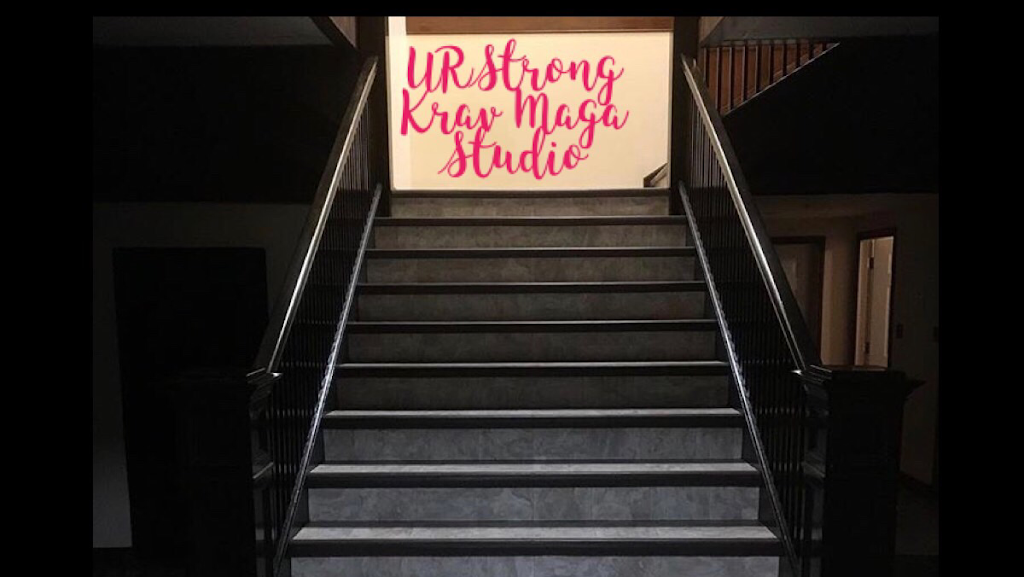 URStrong
Krav Maga
Studio